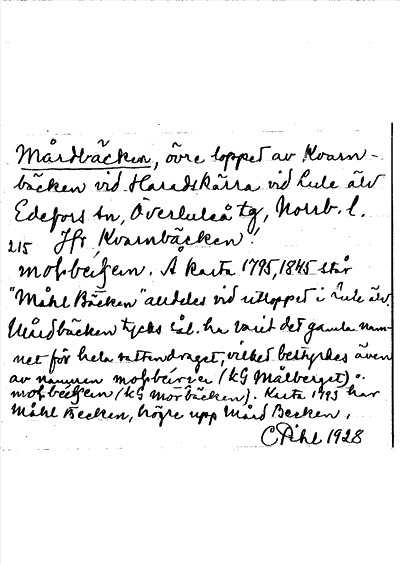 Mårdbäcken, övre loppet av Kvarn-
bäcken vid Haradskärra vid Lule älv
Edefors sn, Överluleå tg, Norrb. l.
215 Jfr Kvarnbäcken!
Å karta 1795, 1845 står
"Måhl Bäcken" alldeles vid utloppet i Lule älv.
Mårdbäcken tycks sål. ha varit det gamla nam-
net för hela vattendraget, vilket bestyrkes även
av namnen (KG Målberget) o.
(KG Morbäcken). Karta 1793 har
Måhl Becken, högre upp Mård Becken.
C Pihl 1928